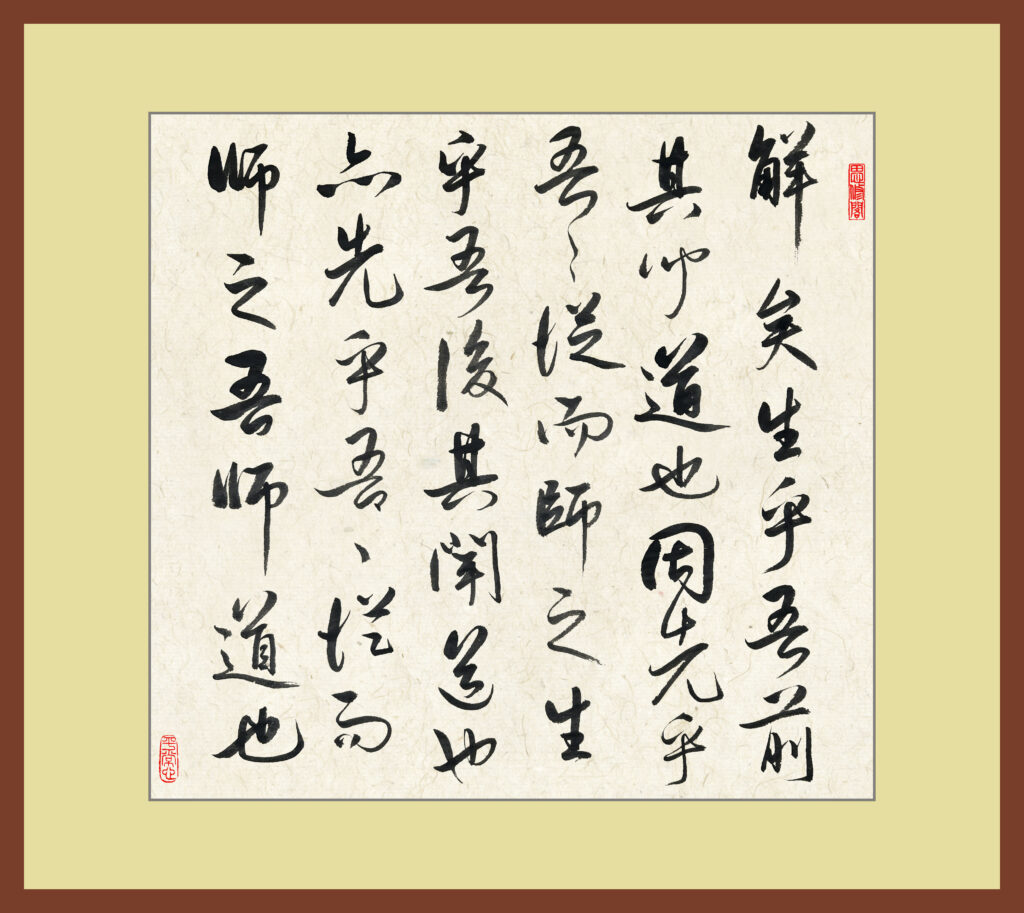 思修閣
解矣生乎吾前
其聞道也固先乎
吾〻從而師之生
乎吾後其聞道也
亦先乎吾〻從而
師之吾師道也
平常心